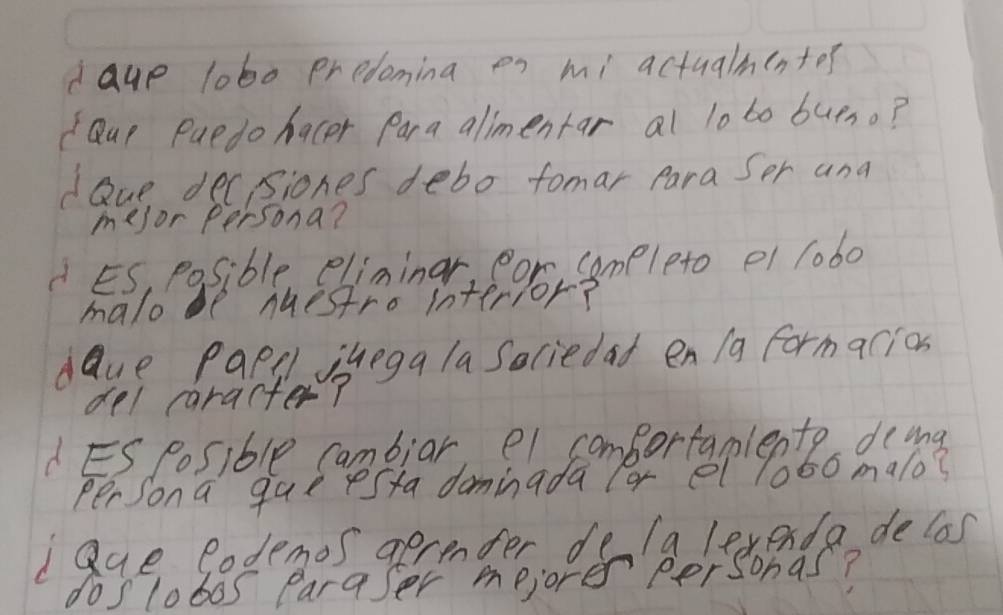 ¿que lobo predomina en mi actualmente?
¿Que puedo hacer para alimentar al lobo bueno?
¿Que decisiones debo tomar para ser una
mejor persona?
¿Es posible eliminar por completo el lobo
malo de nuestro interior?
¿Que papel juega la sociedad en la formacion
del caracter?
¿Es posible cambiar el comportamiento de una
persona que esta dominada por el lobo malo?
¿Que podemos aprender de la leyenda de los
dos lobos para ser mejores personas?